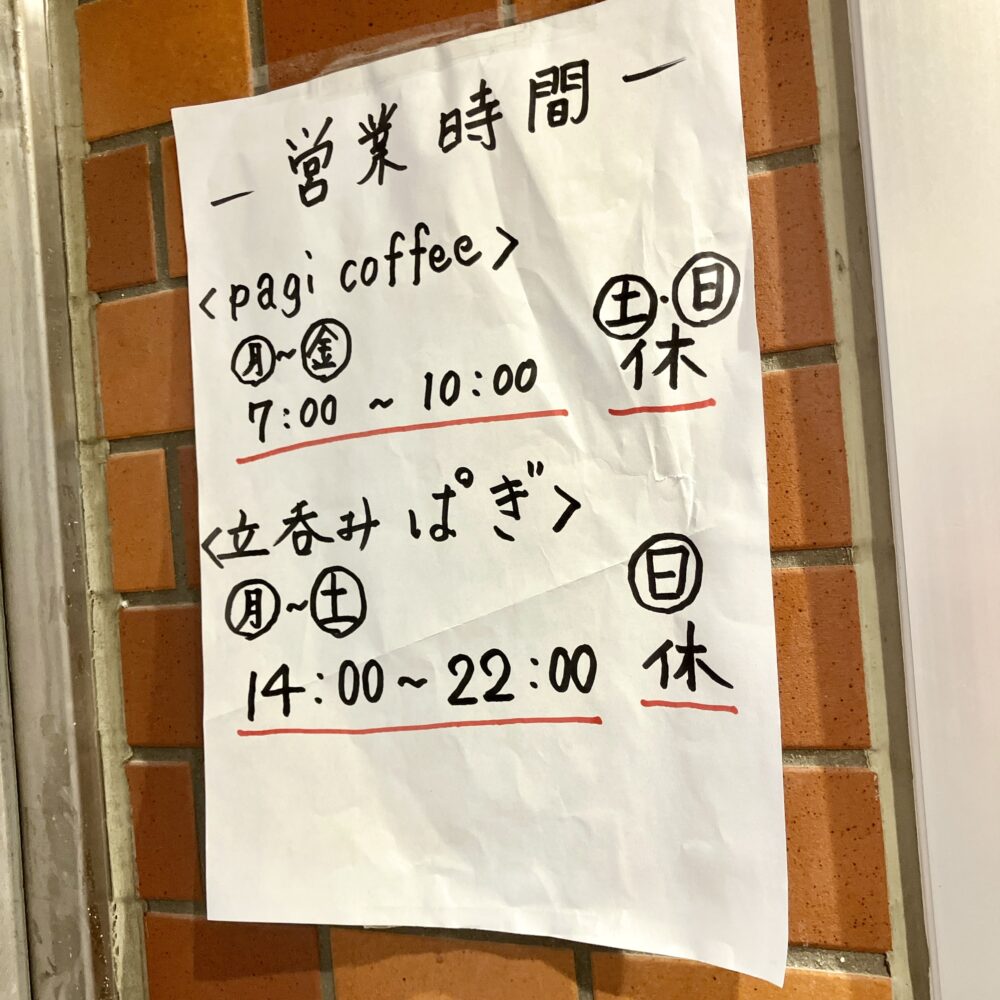 －営業時間－
<pagi coffee>
㊊~㊎ ㊏・㊐
7:00 ~ 10:00 休
<立呑み ぱぎ>
㊊~㊏ ㊐
14:00~22:00 休